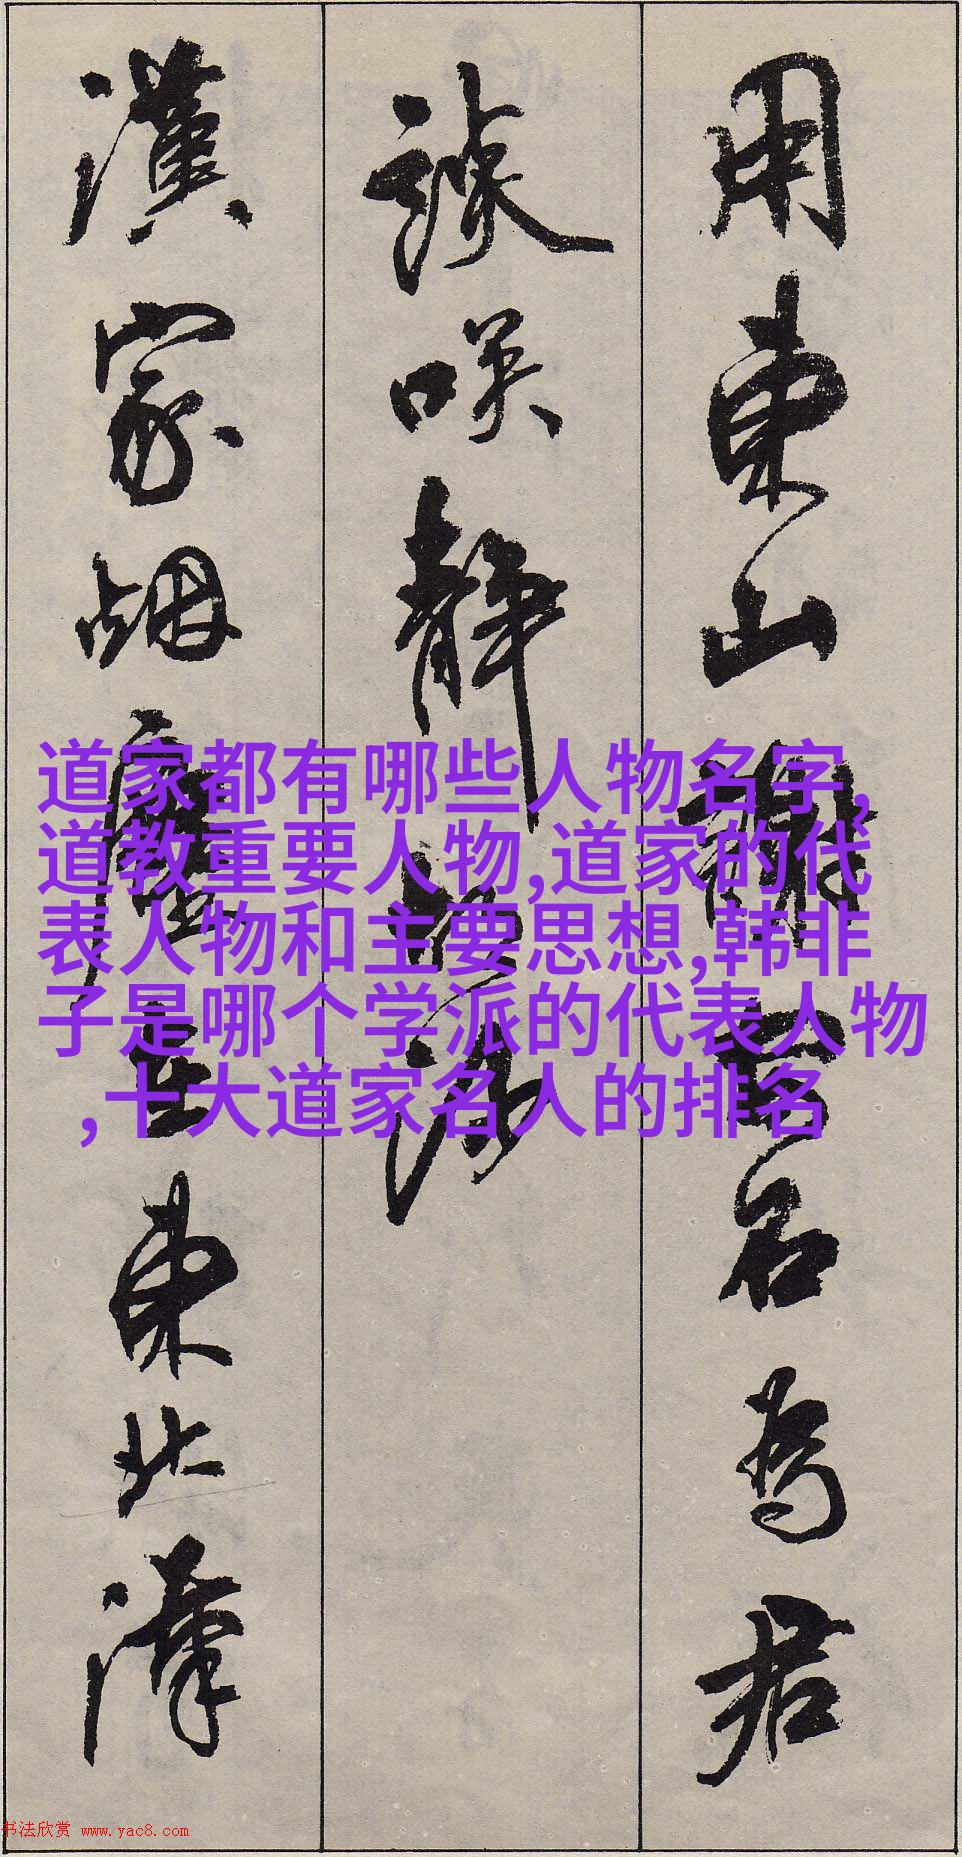 用東山謝安石為君
談咲静胡沙
漢家烟塵在東北漢
道家都有哪些人物名字,
道教重要人物,道家的代
表人物和主要思想,韩非
子是哪个学派的代表人物
,十大道家名人的排名
书法欣赏 www.yac8.com